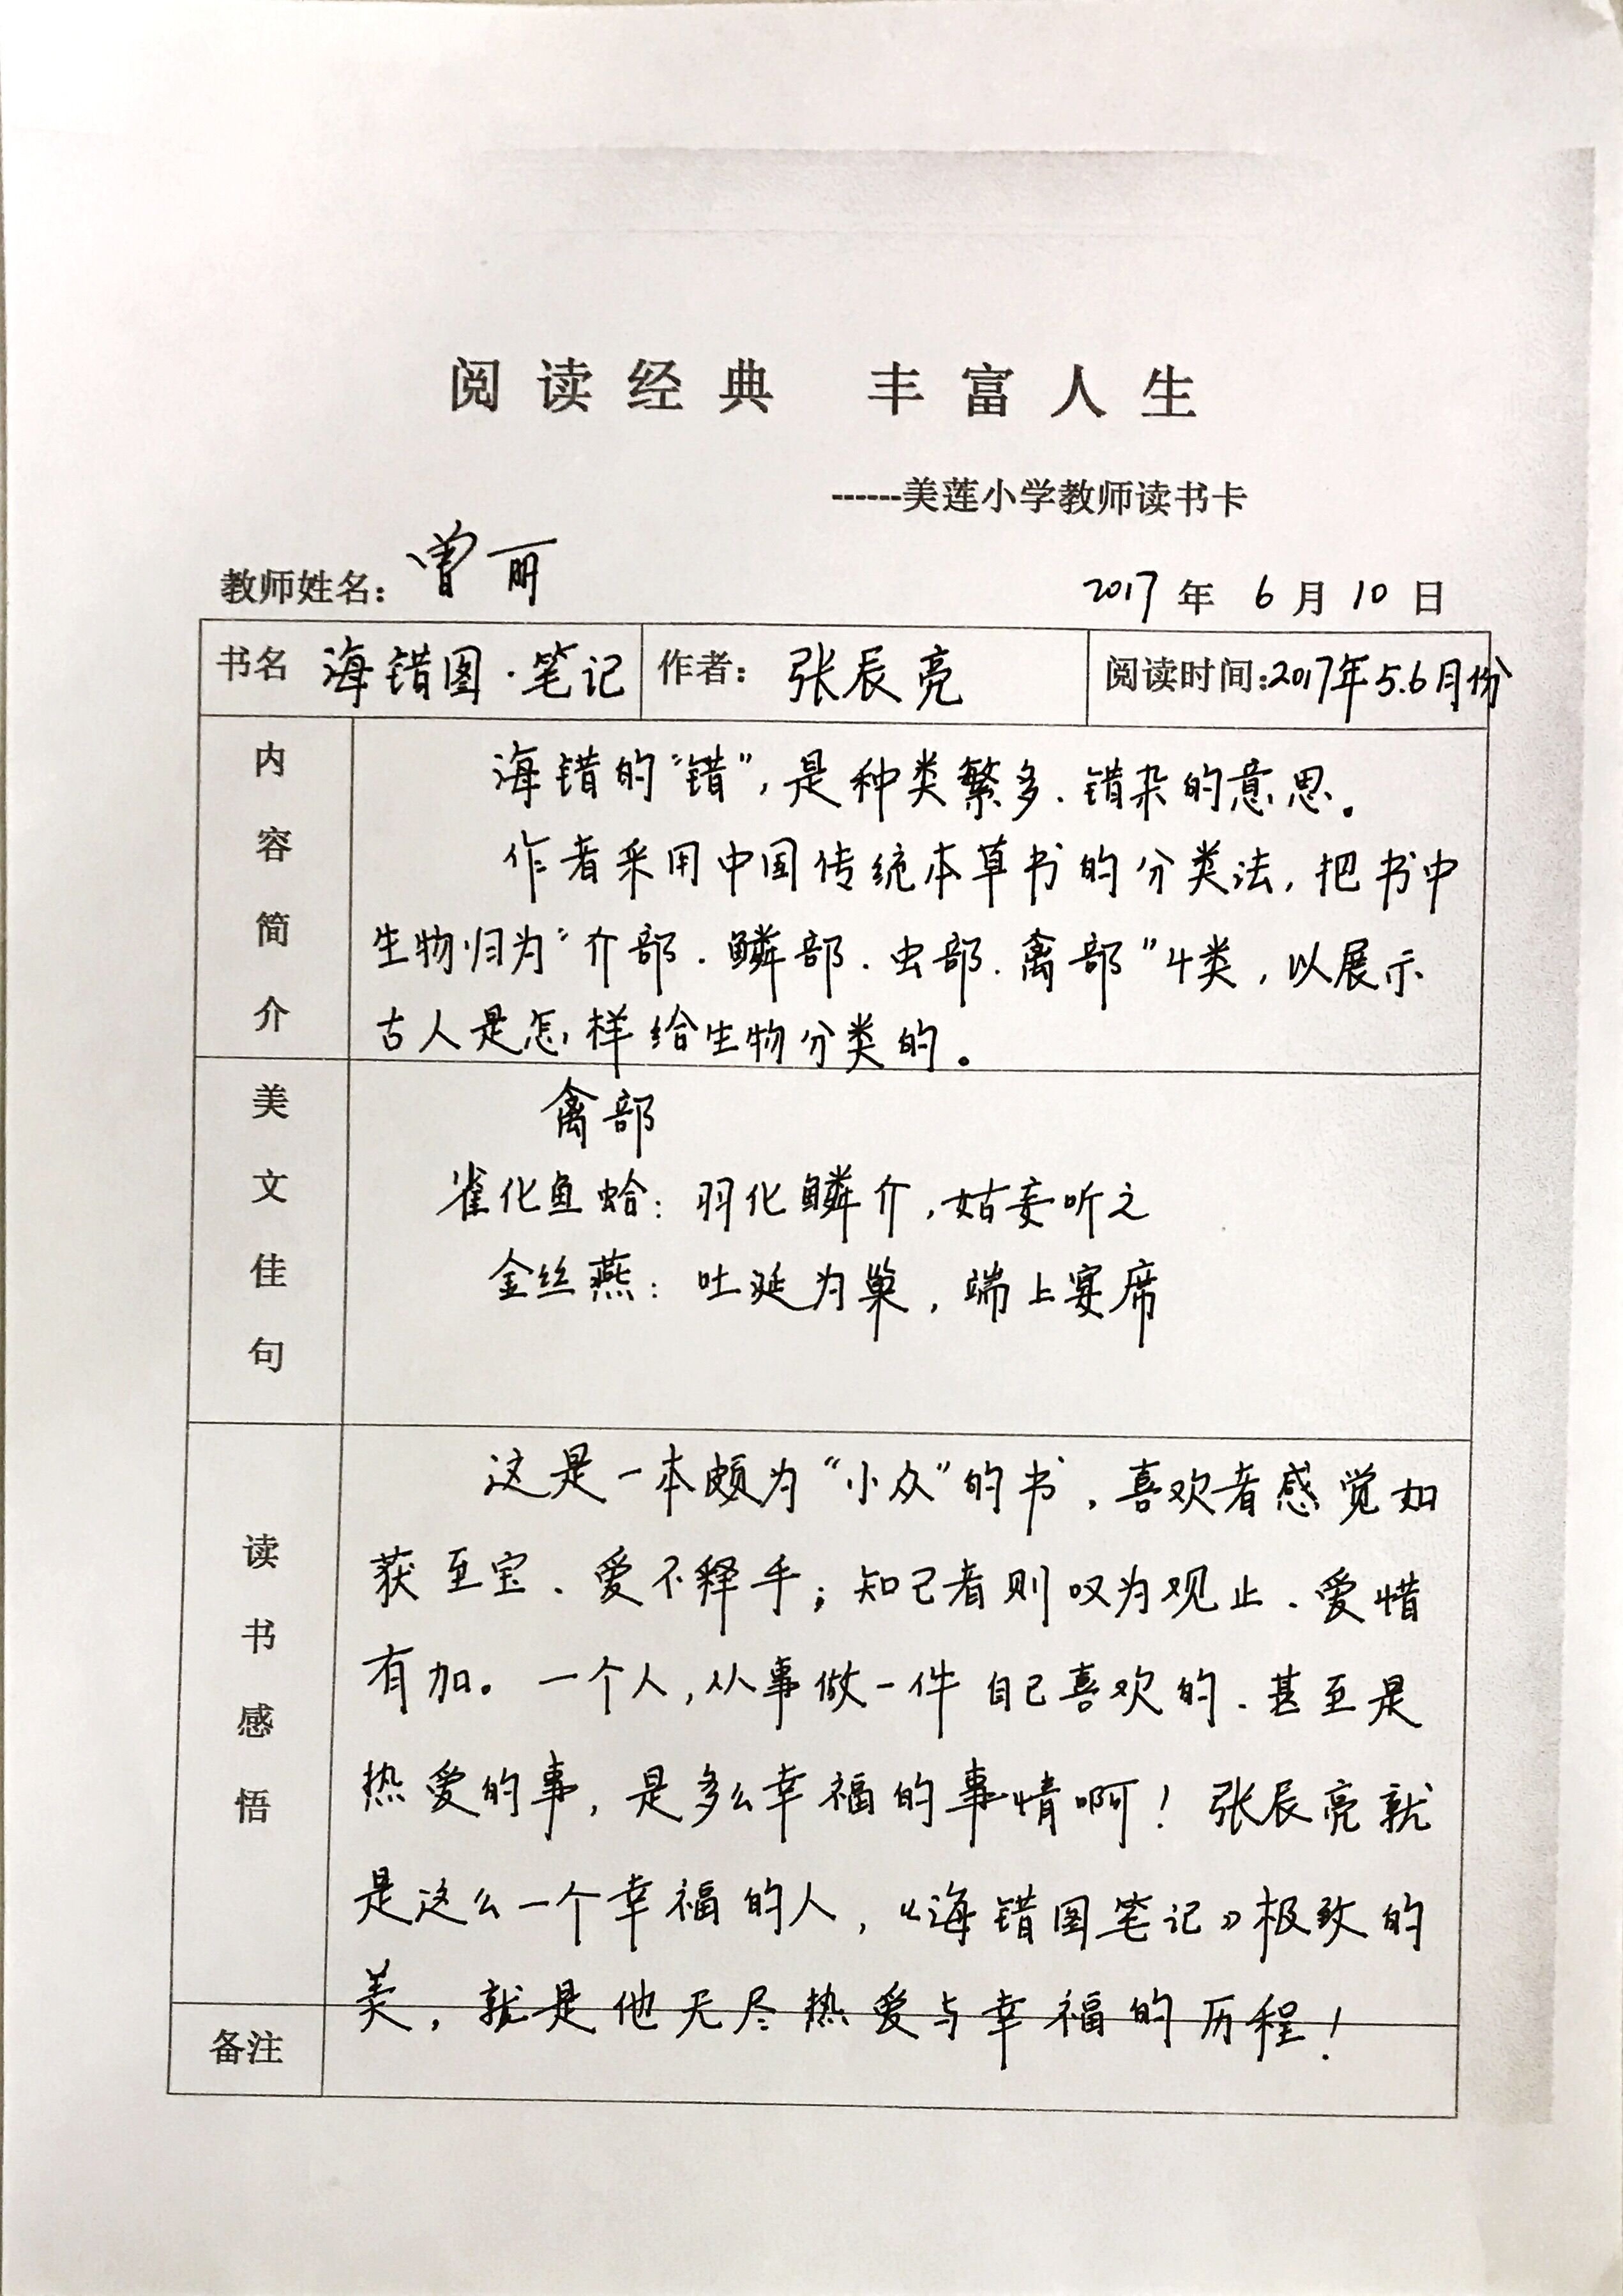 阅读经典 丰富人生
------美莲小学教师读书卡
教师姓名：曾丽 2017 年 6 月 10 日
书名 海错图·笔记 作者：张辰亮 阅读时间:2017年5.6月份
内容简介
海错的“错”，是种类繁多、错杂的意思。
作者采用中国传统本草书的分类法，把书中
生物归为“介部、鳞部、虫部、禽部”4类，以展示
古人是怎样给生物分类的。
美文佳句
禽部
雀化鱼蛤：羽化鳞介，姑妄听之
金丝燕：吐涎为巢，端上宴席
读书感悟
这是一本颇为“小众”的书，喜欢者感觉如
获至宝、爱不释手；知己者则叹为观止、爱惜
有加。一个人，从事做一件自己喜欢的、甚至是
热爱的事，是多么幸福的事情啊！张辰亮就
是这么一个幸福的人，《海错图笔记》极致的
美，就是他无尽热爱与幸福的历程！
备注